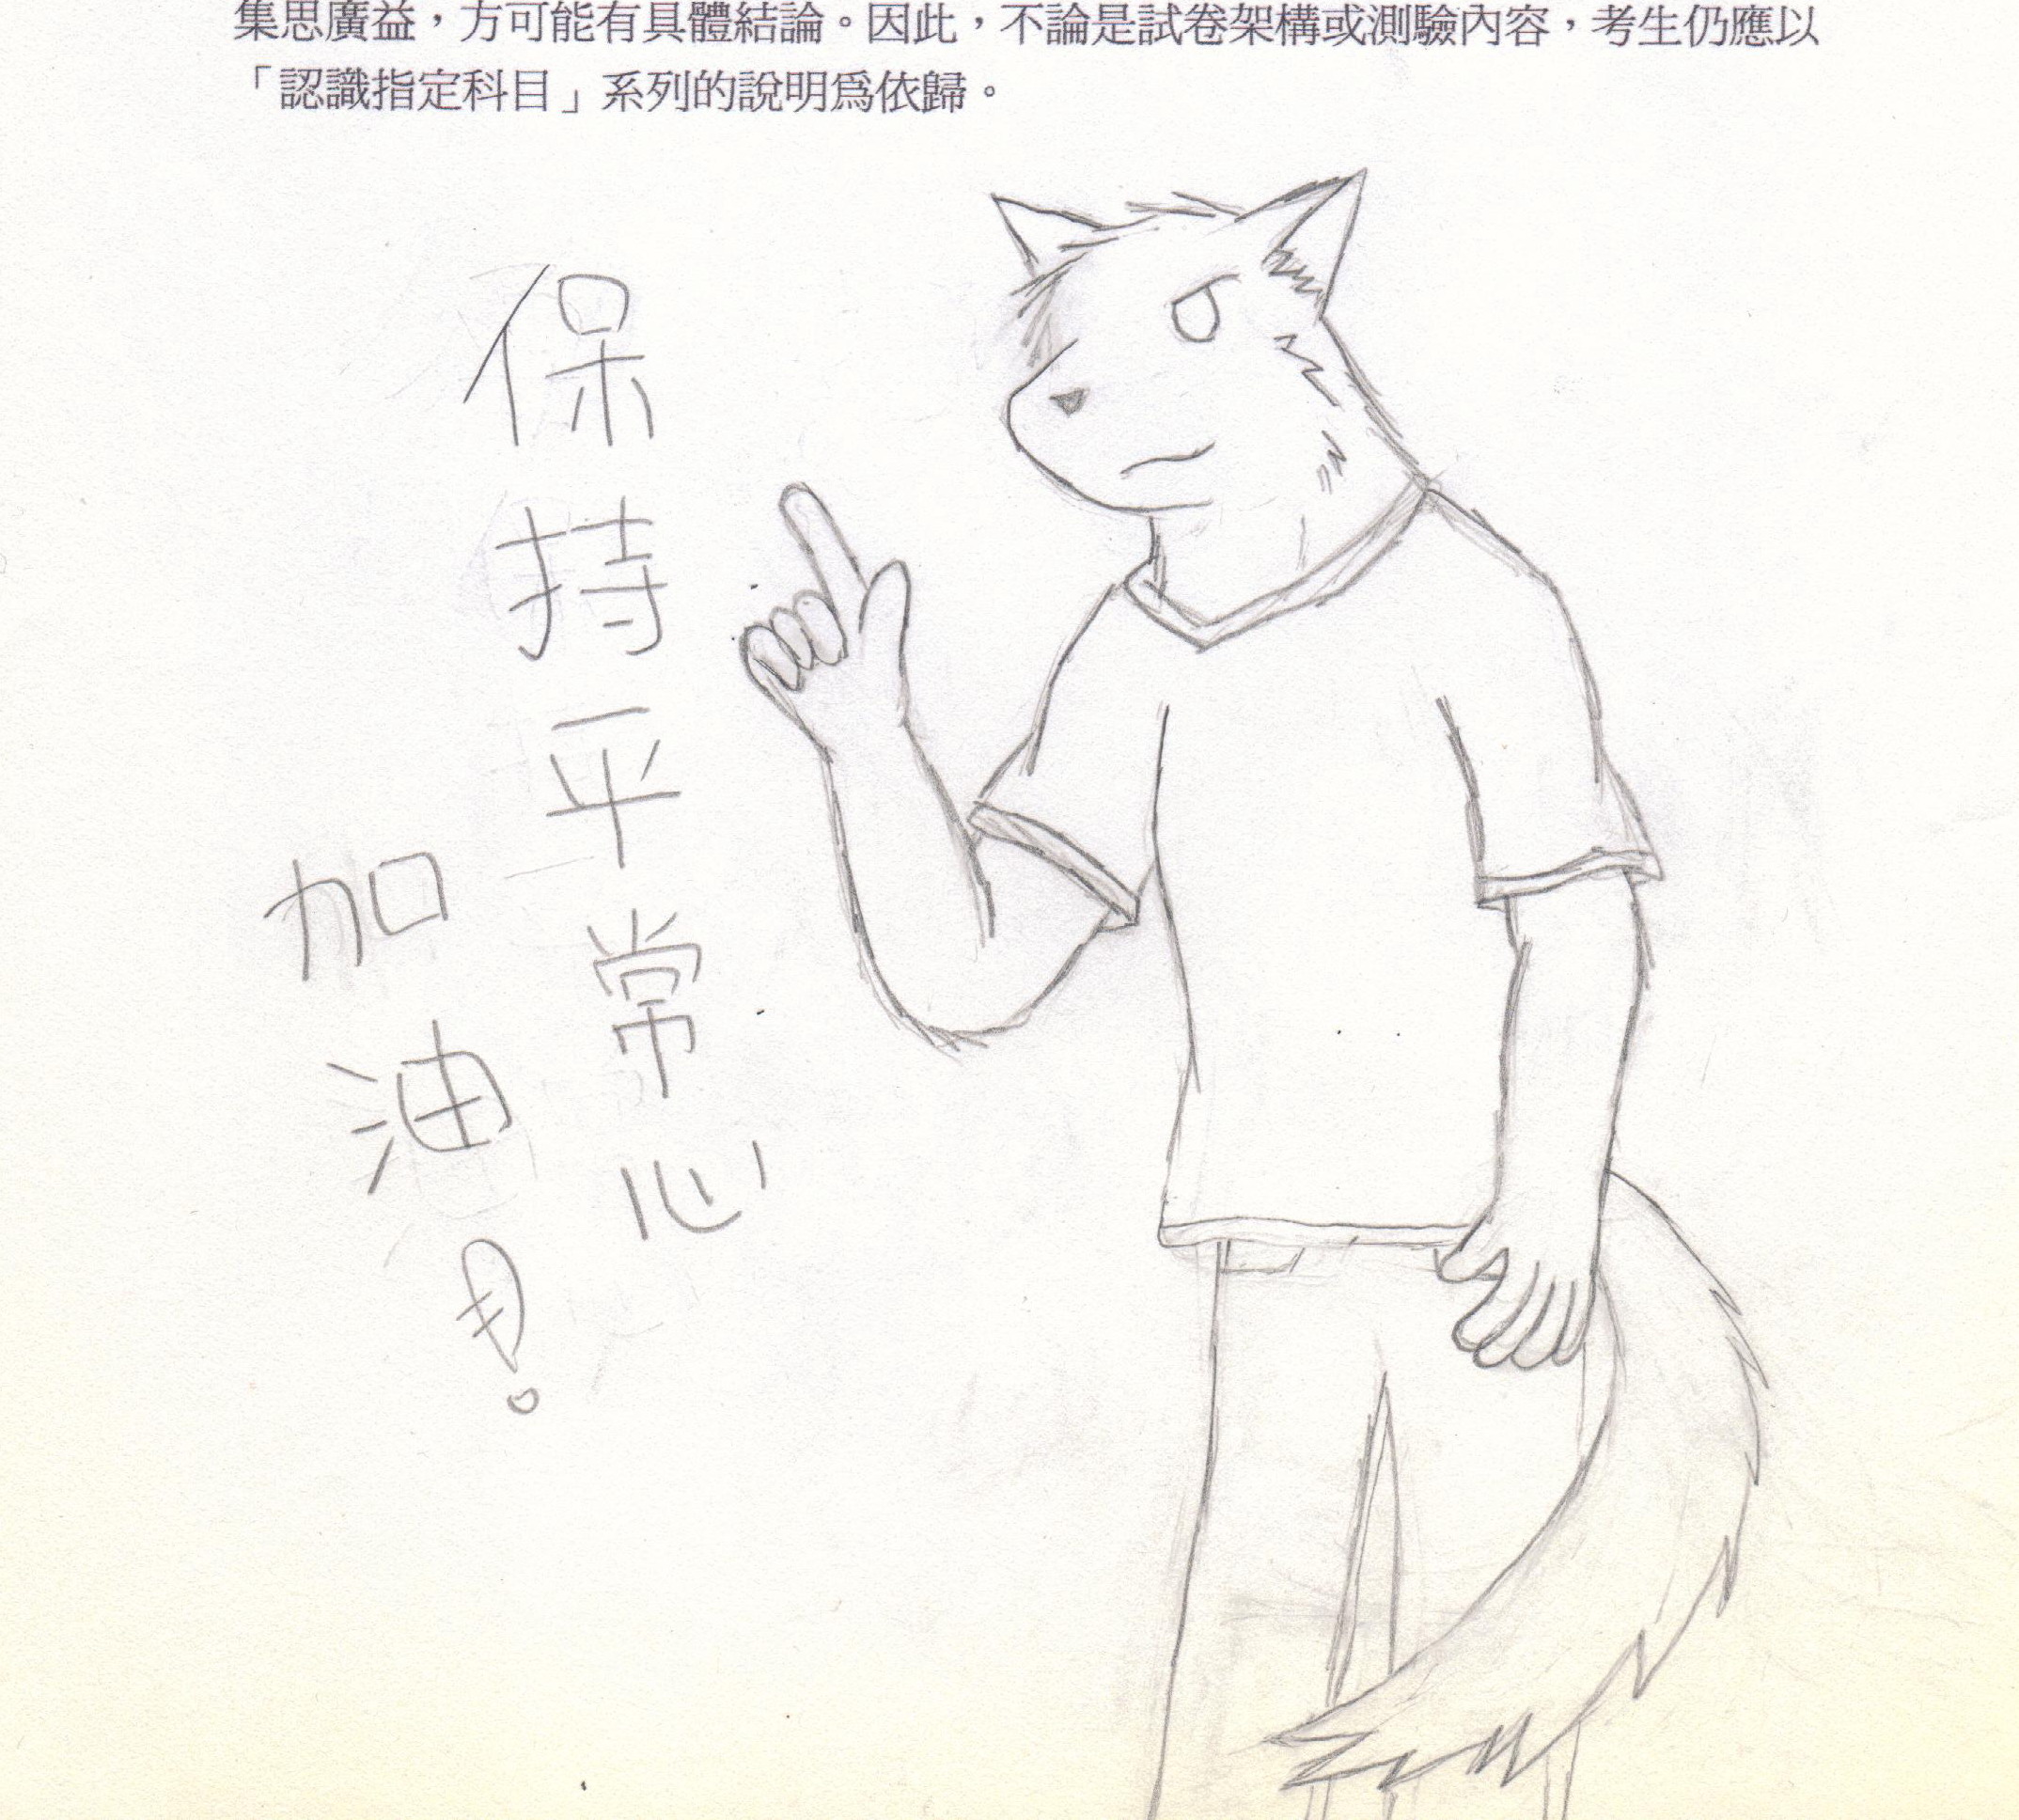 集思廣益，方可能有具體結論。因此，不論是試卷架構或測驗內容，考生仍應以
「認識指定科目」系列的說明爲依歸。
保持平常心
加油！